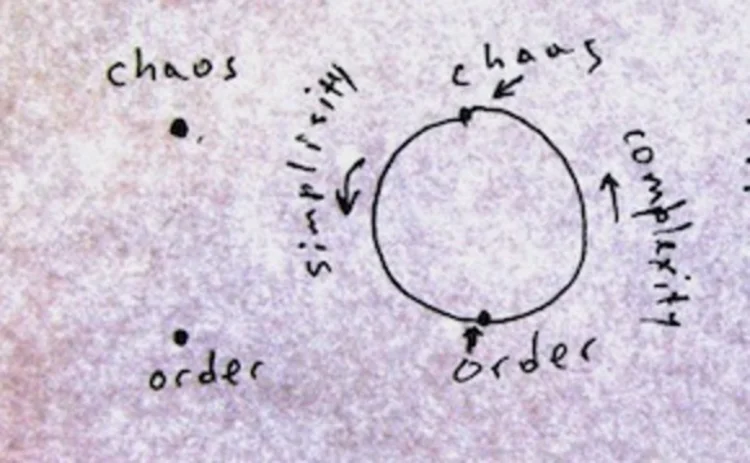 chaos
order
chaos
simplicity
complexity
order